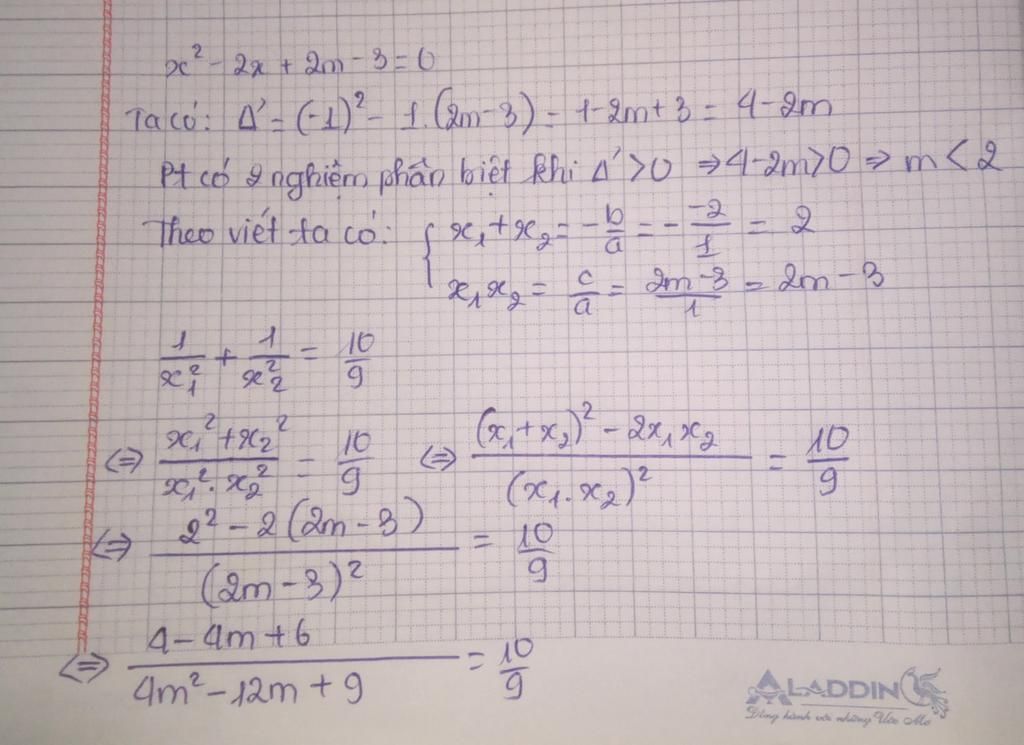 x² - 2x + 2m - 3 = 0
Ta có: Δ' = (-1)² - 1.(2m-3) = 1-2m+3 = 4-2m
Pt có 2 nghiệm phân biệt khi Δ' > 0 ⇒ 4-2m > 0 ⇒ m < 2
Theo viết ta có: { x₁ + x₂ = -b/a = - -2/1 = 2
x₁x₂ = c/a = 2m-3/1 = 2m - 3
1/x₁² + 1/x₂² = 10/9
⇔ x₁² + x₂² / x₁² . x₂² = 10/9 ⇔ (x₁ + x₂)² - 2x₁x₂ / (x₁.x₂)² = 10/9
⇔ 2² - 2(2m - 3) / (2m - 3)² = 10/9
⇔ 4 - 4m + 6 / 4m² - 12m + 9 = 10/9
ALADDIN
Đồng hành với những Ước Mơ